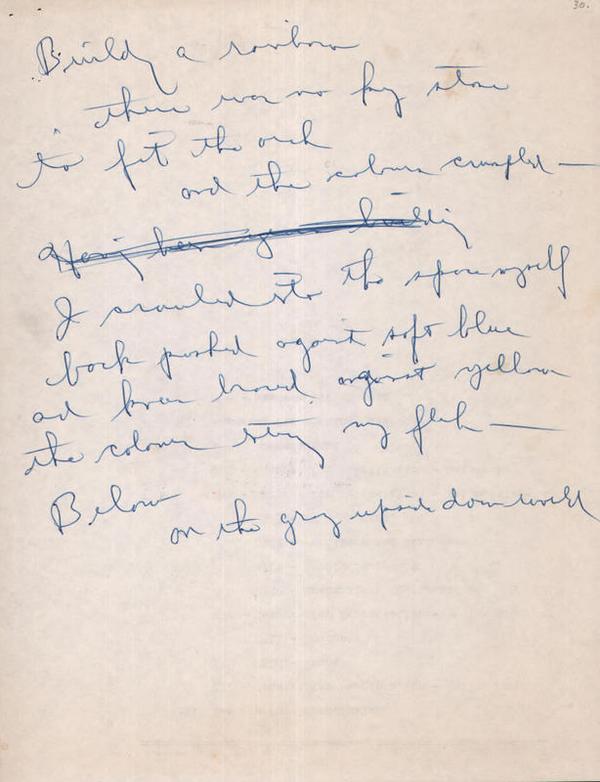 30.
Building a rainbow
there was no key stone
to fit the arch
and the colours crumpled —
I crawled into the space myself
back pushed against soft blue
and knees braced against yellow
the colours string my flesh —
Below
on the grey upside down world